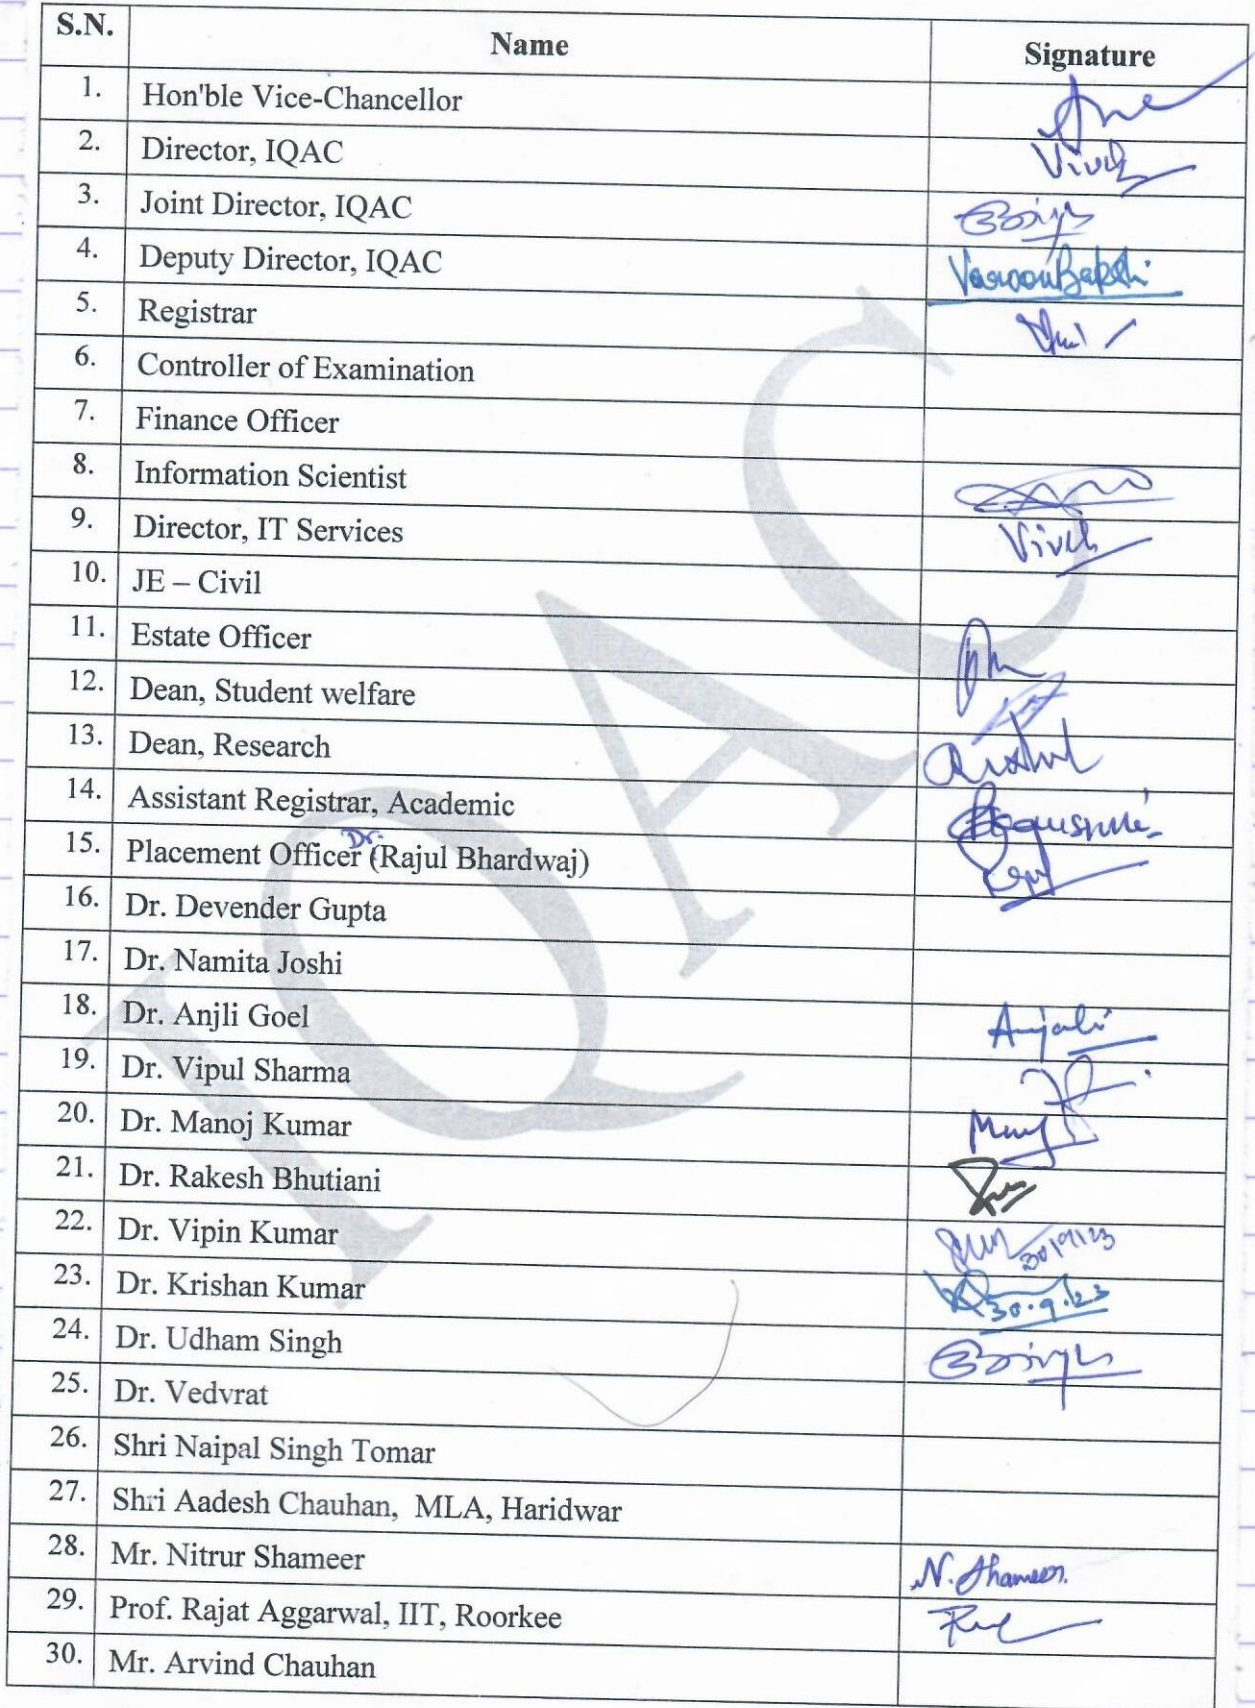 S.N. Name Signature
1. Hon'ble Vice-Chancellor
2. Director, IQAC Vivek
3. Joint Director, IQAC
4. Deputy Director, IQAC Varoon Bakshi
5. Registrar
6. Controller of Examination
7. Finance Officer
8. Information Scientist
9. Director, IT Services Vivek
10. JE – Civil
11. Estate Officer
12. Dean, Student welfare
13. Dean, Research
14. Assistant Registrar, Academic
Dr.
15. Placement Officer (Rajul Bhardwaj)
16. Dr. Devender Gupta
17. Dr. Namita Joshi
18. Dr. Anjli Goel Anjali
19. Dr. Vipul Sharma
20. Dr. Manoj Kumar
21. Dr. Rakesh Bhutiani
22. Dr. Vipin Kumar 30/9/23
23. Dr. Krishan Kumar 30.9.23
24. Dr. Udham Singh
25. Dr. Vedvrat
26. Shri Naipal Singh Tomar
27. Shri Aadesh Chauhan, MLA, Haridwar
28. Mr. Nitrur Shameer N. Shameer
29. Prof. Rajat Aggarwal, IIT, Roorkee
30. Mr. Arvind Chauhan
IQAC